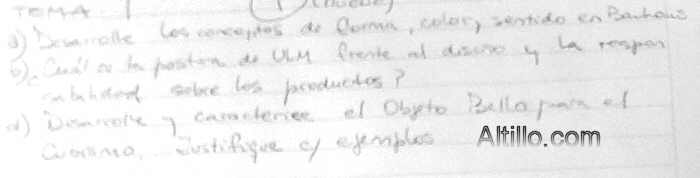 TEMA 1 (nueve)
a) Desarrolle los conceptos de forma, color, sentido en Bauhaus
b) Cuál es la postura de ULM frente al diseño y la respon
sabilidad sobre los productos?
d) Desarrolle y caracterice el Objeto Bello para el
Cubismo. Justifique c/ ejemplos Altillo.com